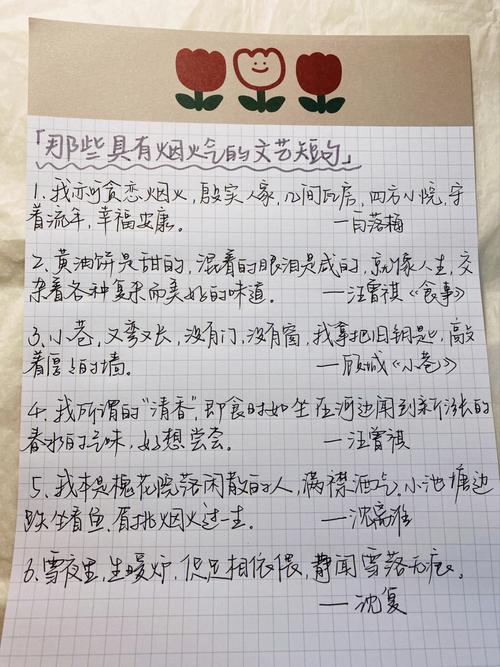 「那些具有烟火气的文艺短句」
1. 我亦贪恋烟火，殷实人家，几间瓦房，四方小院，守
着流年，幸福安康。 —白落梅
2. 黄油饼是甜的，混着的眼泪是咸的，就像人生，交
杂着各种复杂而美好的味道。 —汪曾祺《食事》
3. 小巷，又弯又长，没有门，没有窗，我拿把旧钥匙，敲
着厚厚的墙。 —顾城《小巷》
4. 我所谓的"清香"，即食时如坐在河边闻到新涨的
春水的气味，好想尝尝。 —汪曾祺
5. 我本是槐花院落闲散的人，满襟酒气，小池塘边
跌坐看鱼，眉挑烟火过一生。 —沈离淮
6. 雪夜里，生暖炉，促足相依偎，静闻雪落无痕。
—沈复